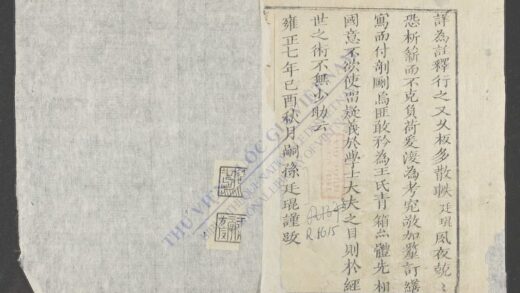 詳為註釋行之又久板多散軼廷琨夙夜兢〻
恐析薪而不克負荷爰復為考究敬加釐訂繕
寫而付剞劂焉匪敢矜為王氏青箱亦體先相
國意不欲使留疑義於學士大夫之目則於經
世之術不無少助云
雍正七年己酉秋月嗣孫廷琨謹跋
R.1615
THƯ VIỆN QUỐC GIA VIỆT NAM
NATIONAL LIBRARY OF VIETNAM